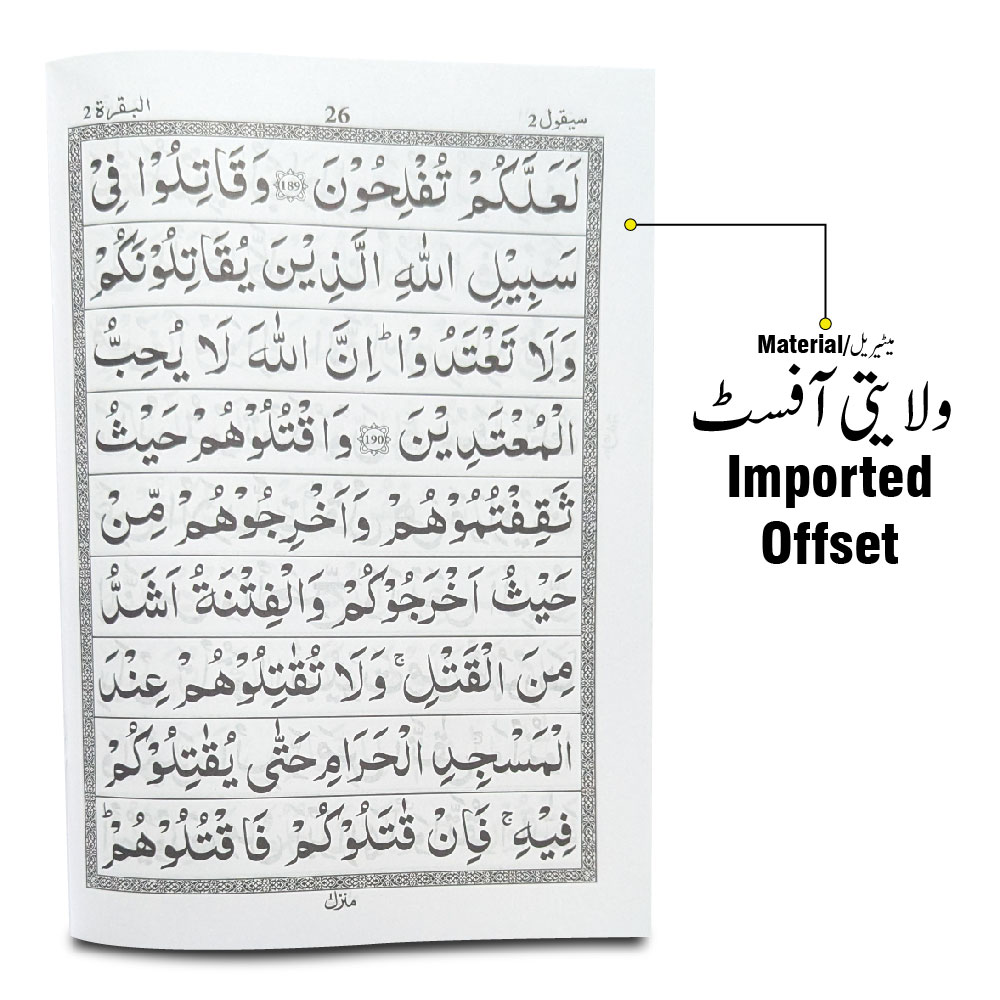 البقرة 2
26
سيقول 2
لَعَلَّكُمْ تُفْلِحُوْنَ 189 وَقَاتِلُوْا فِيْ
سَبِيْلِ اللّٰهِ الَّذِيْنَ يُقَاتِلُوْنَكُمْ
وَلَا تَعْتَدُوْا ؕ اِنَّ اللّٰهَ لَا يُحِبُّ
الْمُعْتَدِيْنَ 190 وَاقْتُلُوْهُمْ حَيْثُ
ثَقِفْتُمُوْهُمْ وَاَخْرِجُوْهُمْ مِّنْ
حَيْثُ اَخْرَجُوْكُمْ وَالْفِتْنَةُ اَشَدُّ
مِنَ الْقَتْلِ ۚ وَلَا تُقٰتِلُوْهُمْ عِنْدَ
الْمَسْجِدِ الْحَرَامِ حَتّٰى يُقٰتِلُوْكُمْ
فِيْهِ ۚ فَاِنْ قٰتَلُوْكُمْ فَاقْتُلُوْهُمْ ؕ
منزل
Material/میٹیریل
ولایتی آفسٹ
Imported
Offset